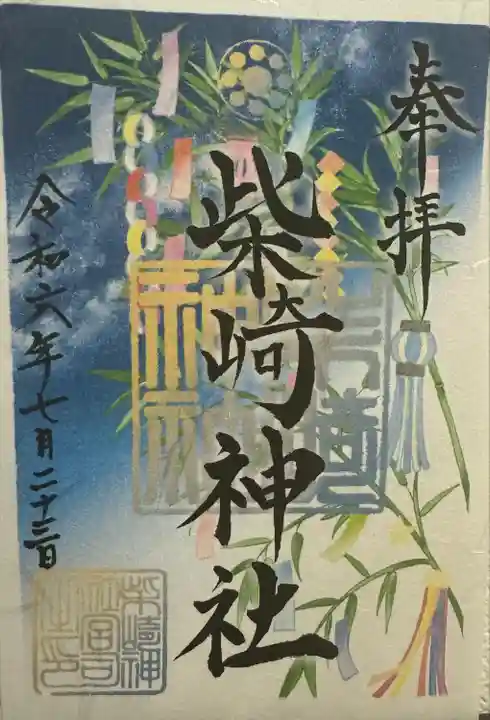 奉拝
柴崎神社
令和六年七月二十三日